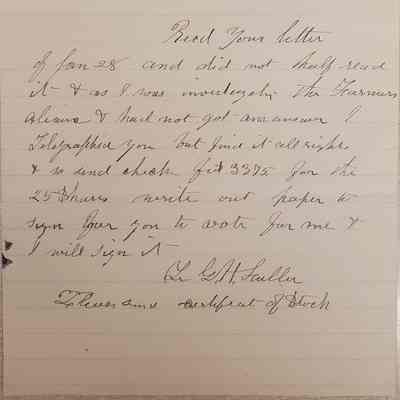 Recd Your letter
of Jan 28 and did not half read
it & as I was investigatin the Farmers
& had not got an answer I
Telegraphed you but find it all right
& so send check for $3375 for the
25 Shares write out paper to
sign for you to vote for me &
I will sign it
G W
certificat of Stock